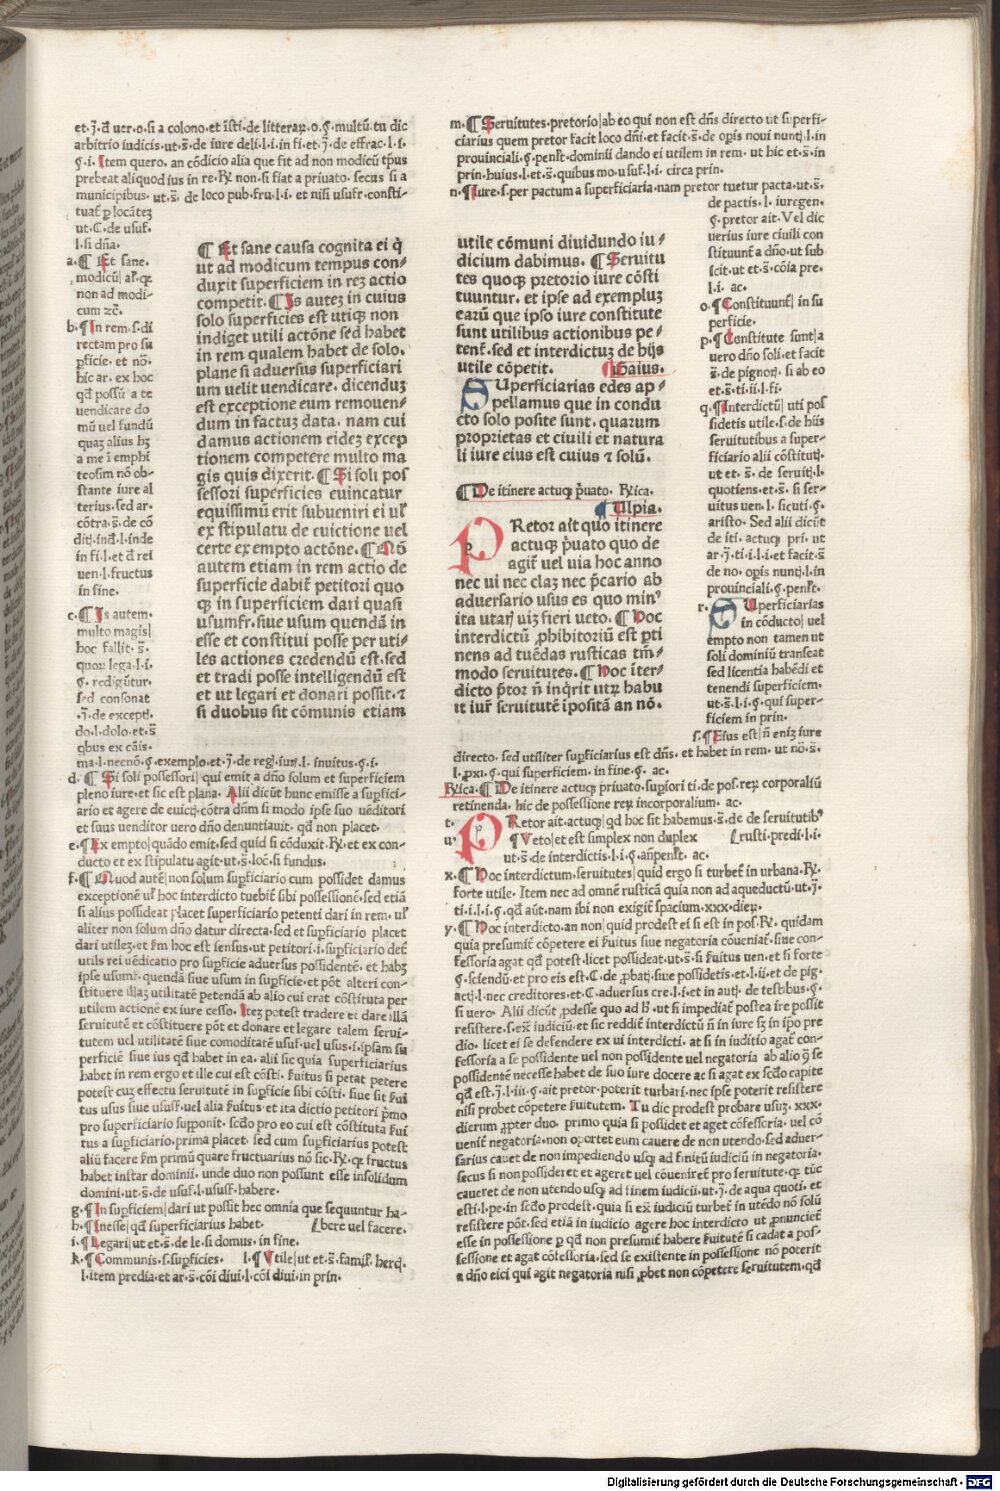 et .ȷ̄. đ uer. o. si a colono. et īsti. de litterar̄. o. §. multū. tu dic
arbitrio iudicis. ut. s̄. de iure deli. l. i. in fi. et .ȷ̄. de effrac. l. s.
§. i. Item quero. an cōdicio alia que sit ad non modicū tp̄us
prebeat aliquod ius in re. R̄. non. si fiat a priuato. secus si a
municipibus. ut. s̄. de loco pub. fru. l. i. et nisi usufr. consti-
tuat̄ ꝑ locātez
ut. C. de usuf.
l. si dn̄a.
a. ¶ Et sane.
modicū| ar. qꝫ
non ad modi-
cum zc̄.
b. ¶ In rem. s. di
rectam pro su
ꝑficie. et nō.
hic ar. ex hoc
qđ possū a te
uendicare do
mū uel fundū
quaz alius hꝫ
a me ī emphi
teosim nō ob-
stante iure al
terius. sed ar.
cōtra. s̄. de cō
dit̄. inđ. l. inde
in fi. l. et đ rei
uen. l. fructus
in fine.
c. ¶ Is autem.
multo magis|
hoc fallit. s̄.
quoꝝ lega. l. i.
§. redigūtur.
sed consonat
.ȷ̄. de except̄.
do. l. dolo. et. s̄
qbus ex cāis.
ma. l. necnō. §. exemplo. et .ȷ̄. de reḡ. iur̄. l. inuitus. §. i.
¶ Et sane causa cognita ei q̄
ut ad modicum tempus con/
duxit superficiem in reꝫ actio
competit. ¶ Is auteꝫ in cuius
solo superficies est utiqꝫ non
indiget utili actōne sed habet
in rem qualem habet de solo.
plane si aduersus superficiari
um uelit uendicare. dicenduꝫ
est exceptione eum remouen/
dum in factuꝫ data. nam cui
damus actionem eideꝫ excep
tionem competere multo ma
gis quis dixerit. ¶ Si soli pos
sessori superficies euincatur
equissimū erit subueniri ei ul̄
ex stipulatu de euictione uel
certe ex empto actōne. ¶ Nō
autem etiam in rem actio de
superficie dabit̄ petitori quo
qꝫ in superficiem dari quasi
usumfr. siue usum quendā in
esse et constitui posse per uti/
les actiones credendū est. sed
et tradi posse intelligendū est
et ut legari et donari possit. ⁊
si duobus sit cōmunis etiam
d. ¶ Si soli possessori| qui emit a dn̄o solum et superficiem
pleno iure. et sic est plana. Alii dicūt hunc emisse a suꝑfici-
ario et agere de euict̄. cōtra dn̄m si modo ipse suo uēditori
et suus uenditor uero dn̄o denuntiauit. qđ non placet.
e. ¶ Ex empto| quādo emit. sed quid si cōduxit. R̄. et ex con-
ducto et ex stipulatu agit. ut. s̄. loc̄. si fundus.
f. ¶ Quod autē| non solum suꝑficiario cum possidet damus
exceptionē ul̄ hoc interdicto tuebit̄ sibi possessionē. sed etiā
si alius possideat placet superficiario petenti dari in rem. ul̄
aliter non solum dn̄o datur directa. sed et suꝑficiario placet
dari utileꝫ. et s̄m hoc est sensus. ut petitori. i. suꝑficiario det̄
utilis rei uēdicatio pro suꝑficie aduersus possidentē. et habꝫ
ipse usumf. quendā siue usum in suꝑficie. et pōt alteri con-
stituere illaꝫ utilitatē petendā ab alio cui erat cōstituta per
utilem actionē ex iure cesso. Iteꝫ potest tradere et dare illā
seruitutē et cōstituere pōt et donare et legare talem serui-
tutem uel utilitatē siue comoditatē usuf. uel usus. i. ipsam su
perficiē siue ius qđ habet in ea. alii sic quia superficiarius
habet in rem ergo et ille cui est cōsti. s̄uitus si petat petere
potest cuꝫ effectu seruitutē in suꝑficie sibi cōsti. siue sit s̄ui
tus usus siue ususf. uel alia s̄uitus. et ita dictio petitori ꝑmo
pro superficiario supponit. scđo pro eo cui est cōstituta s̄ui
tus a suꝑficiario. prima placet. sed cum suꝑficiarius potest
aliū facere s̄m primū quare fructuarius nō sic. R̄. qꝫ fructus
habet instar dominii. unde duo non possunt esse insolidum
domini. ut. s̄. de usuf. l. ususf. habere.
g. ¶ In suꝑficiem| dari ut possit hec omnia que sequuntur ha-
h. ¶ Inesse| qđ superficiarius habet. [bere uel facere.
i. ¶ Legari| ut et. s̄. de le. si domus. in fine.
k. ¶ Communis. s. suꝑficies. l. ¶ Utile| ut et. s̄. famil̄. herq̄.
l. item predia. et ar. s̄. cōi diui. l. cōi diui. in prin.
m. ¶ Seruitutes. pretorio| ab eo qui non est dn̄s directo ut suꝑfi-
ciarius quem pretor facit loco dn̄i. et facit. s̄. de opis noui nunt̄. l. in
prouinciali. §. penl̄t. dominii dando ei utilem in rem. ut hic et. s̄. in
prin. huius. l. et. s̄. quibus mo. usuf. l. i. circa prin.
n. ¶ Iure. s. per pactum a superficiaria. nam pretor tuetur pacta. ut. s̄.
de pactis. l. iuregen.
§. pretor ait. Vel dic
uerius iure ciuili con
stituunt̄ a dn̄o. ut sub
icit. ut et. s̄. cōia pre.
l. i. ac.
o. ¶ Constituunt̄| in su
perficie.
p. ¶ Constitute sunt| a
uero dn̄o soli. et facit
s̄. de pignor̄. si ab eo
et. s̄. ti. ii. l. fi.
q. ¶ Interdictū| uti pos
sidetis utile. s. de hiis
seruitutibus a super-
ficiario alii cōstitut̄.
ut et. s̄. de seruit̄. l.
quotiens. et. s̄. si ser-
uitus uen. l. sicuti. §.
aristo. Sed alii dicūt
de iti. actuqꝫ pri. ut
ar. ȷ̄. ti. i. l. i. et facit. s̄
de no. opis nunt̄. l. in
prouinciali. §. penl̄t.
r. Superficiarias
in cōducto| uel
empto non tamen ut
soli dominiū transeat
sed licentia habēdi et
tenendi superficiem.
ut. s̄. l. i. §. qui super-
ficiem in prin.
s. ¶ Eius est| n̄ eniꝫ iure
directo. sed utiliter suꝑficiarius est dn̄s. et habet in rem. ut nō. s̄.
l. ꝓxi. §. qui superficiem. in fine. §. ac.
utile cōmuni diuidundo iu/
dicium dabimus. ¶ Seruitu
tes quoqꝫ pretorio iure cōsti
tuuntur. et ipse ad exempluꝫ
earū que ipso iure constitute
sunt utilibus actionibus pe/
tent̄. sed et interdictuꝫ de hijs
utile cōpetit. ¶ Gaius.
SUperficiarias edes ap/
pellamus que in condu
cto solo posite sunt. quarum
proprietas et ciuili et natura
li iure eius est cuius ⁊ solū.
¶ De itinere actuqꝫ p̄uato. R̄ica.
¶ Ulpia.
PRetor ait quo itinere
actuqꝫ p̄uato quo de
agit̄ uel uia hoc anno
nec ui nec claꝫ nec p̄cario ab
aduersario usus es quo minꝰ
ita utar̄ uiꝫ fieri ueto. ¶ Hoc
interdictū ꝓhibitoriū est ꝑti
nens ad tuēdas rusticas tm̄/
modo seruitutes. ¶ Hoc īter/
dicto p̄tor n̄ inq̄rit utꝝ habu
it iur̄ seruitutē īpositā an nō.
R̄ica. ¶ De itinere actuqꝫ priuato. suꝑiori ti. de pos. reꝝ corporaliū
retinenda. hic de possessione reꝝ incorporalium. ac.
t. PRetor ait. actuqꝫ| qđ hoc sit habemus. s̄. de de seruitutibꝰ
u. ¶ Veto| et est simplex non duplex [rusti. predi. l. i.
ut. s̄. de interdictis. l. i. §. an̄penl̄t. ac.
x. ¶ Hoc interdictum. seruitutes| quid ergo si turbet̄ in urbana. R̄.
forte utile. Item nec ad omnē rusticā quia non ad aqueductū. ut .ȷ̄.
ti. i. l. i. §. qđ aūt. nam ibi non exigit̄ spacium. xxx. dieꝝ.
y. ¶ Hoc interdicto. an non| quid prodest ei si est in pos. R̄. quidam
quia presumit̄ cōpetere ei s̄uitus siue negatoria cōueniat̄. siue con-
fessoria agat qđ potest. licet possideat. ut. s̄. si s̄uitus uen. et si forte
§. sciendū. et pro eis est. C. de ꝓbat̄. siue possidetis. et. l. ii. et de pig.
act̄. l. nec creditores. et. C. aduersus cre. l. i. et in aut̄. de testibus. §.
si uero. Alii dicūt ꝓdesse quo ad h̄. ut si impediat̄ postea ire possit
resistere. s. ex̄ iudiciū. et sic reddit̄ interdictū n̄ in iure sꝫ in ip̄o pre
dio. licet ei se defendere ex ui interdicti. at si in iuditio agat̄ con-
fessoria a se possidente uel non possidente uel negatoria ab alio q̄ se
possidentē necesse habet de suo iure docere ac si agat ex scđo capite
qđ est .ȷ̄. l. iii. §. ait pretor. poterit turbari. nec ipse poterit resistere
nisi probet cōpetere s̄uitutem. Tu dic prodest probare usuꝫ. xxx.
dierum ꝓpter duo. primo quia si possidet et aget cōfessoria. uel cō
uenit̄ negatoria. non oportet eum cauere de non utendo. sed aduer-
sarius cauet de non impediendo usqꝫ ad finitū iudiciū in negatoria.
secus si non possideret et ageret uel cōueniret̄ pro seruitute. qꝫ tūc
caueret de non utendo usqꝫ ad finem iudicii. ut .ȷ̄. de aqua quoti. et
esti. l. pe. in scđo prodest. quia si ex̄ iudiciū turbet̄ in utēdo nō solū
resistere pōt. sed etiā in iudicio agere hoc interdicto ut ꝓnunciet̄
esse in possessione ꝑ qđ non presumit̄ habere s̄uitutē si cadat a pos-
sessione et agat cōfessoria. sed se existente in possessione nō poterit
a dn̄o eici qui agit negatoria nisi ꝓbet non cōpetere seruitutem. qđ
Digitalisierung gefördert durch die Deutsche Forschungsgemeinschaft - DFG